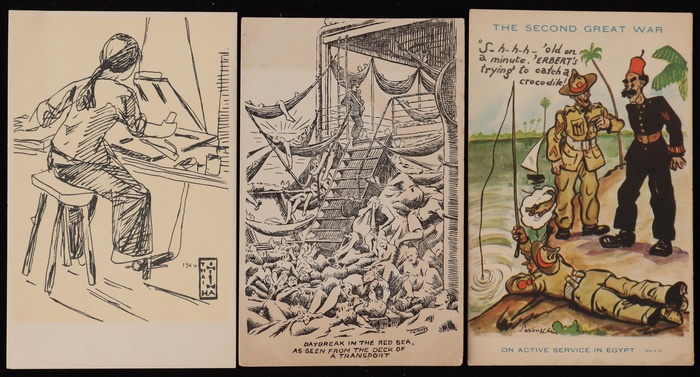 THAI HA
DAYBREAK IN THE RED SEA,
AS SEEN FROM THE DECK OF
A TRANSPORT
THE SECOND GREAT WAR
"S-h-h-h- 'old on
a minute. 'ERBERT'S
trying to catch a
crocodile!
ON ACTIVE SERVICE IN EGYPT